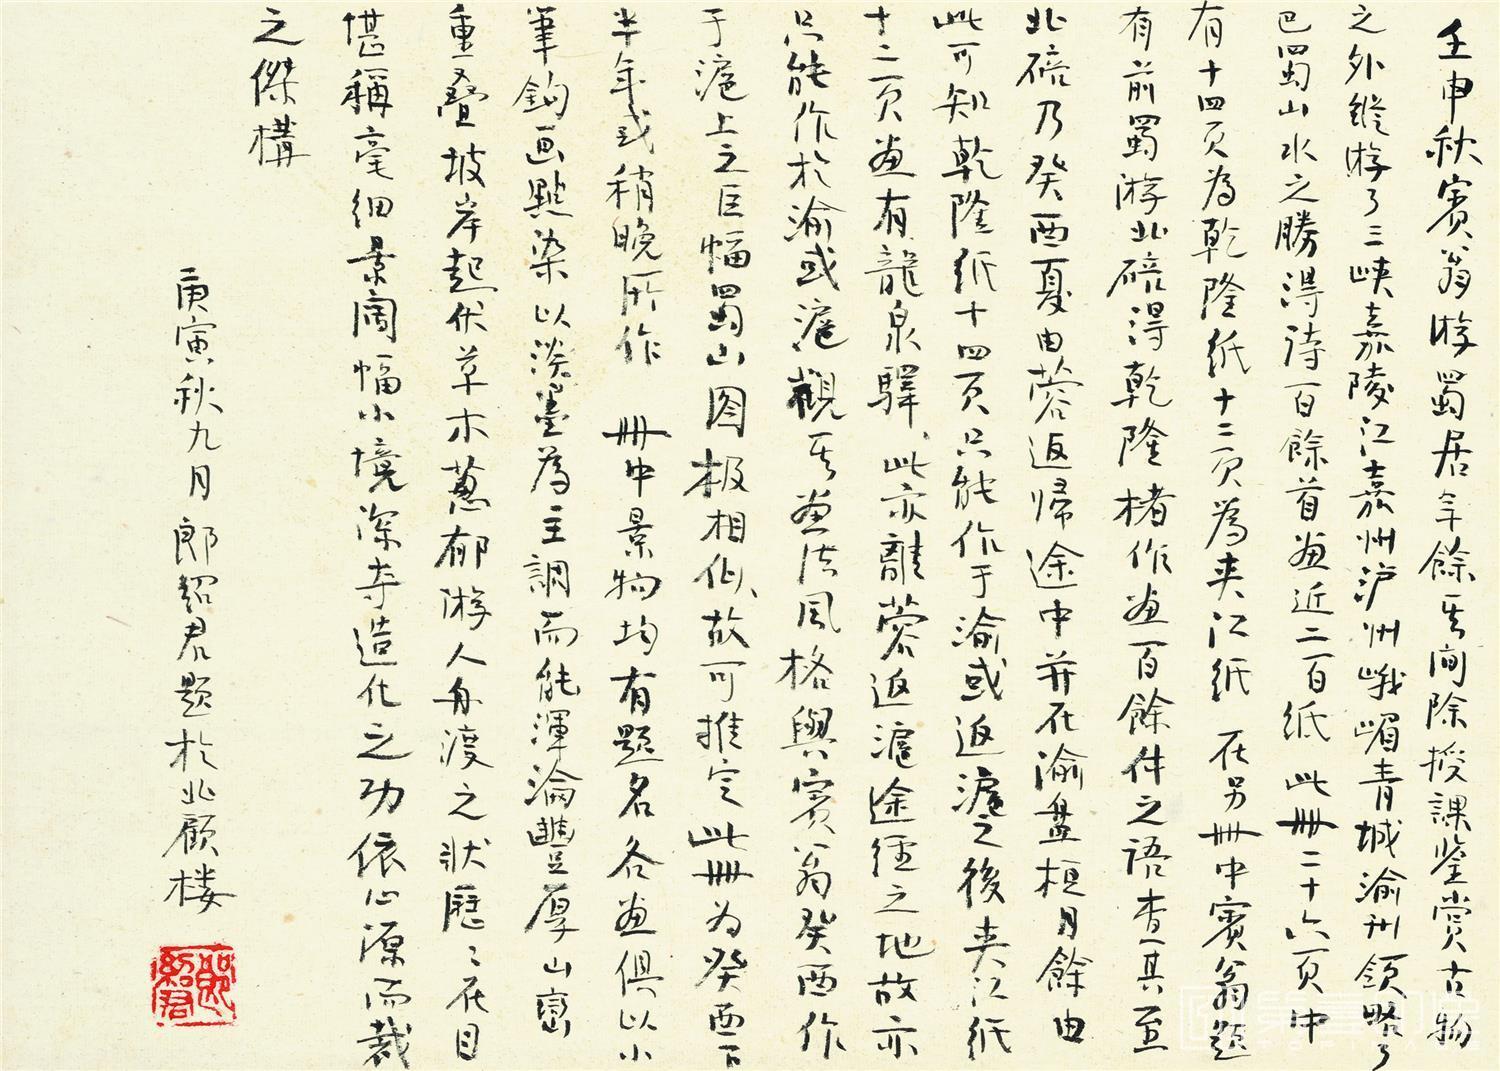 壬申秋賓翁游蜀居年餘其间除授課鉴赏古物
之外縱游了三峡嘉陵江嘉州泸州峨嵋青城渝州领略了
巴蜀山水之勝得诗百餘首画近二百纸此冊二十六页中
有十四页为乾隆纸十二页為夹江纸在另冊中賓翁题
有前蜀游北碚得乾隆楮作画百餘件之语查其至
北碚乃癸酉夏由蓉返歸途中并在渝盘桓月餘由
此可知乾隆纸十四页只能作于渝或返滬之後夹江纸
十二页画有龍泉驛此亦離蓉返滬途經之地故亦
只能作於渝或滬觀其画法风格與賓翁癸酉作
于滬上之巨幅蜀山图极相似故可推定此冊为癸酉下
半年或稍晚所作冊中景物均有题名各画俱以小
筆鈎画點染以淡墨為主調而能渾淪豐厚山巒
重叠坡岸起伏草木蔥郁游人舟渡之狀歷歷在目
堪稱毫细景阔幅小境深夺造化之功依心源而裁
之傑構
庚寅秋九月郎绍君题於北顾楼
郎绍君